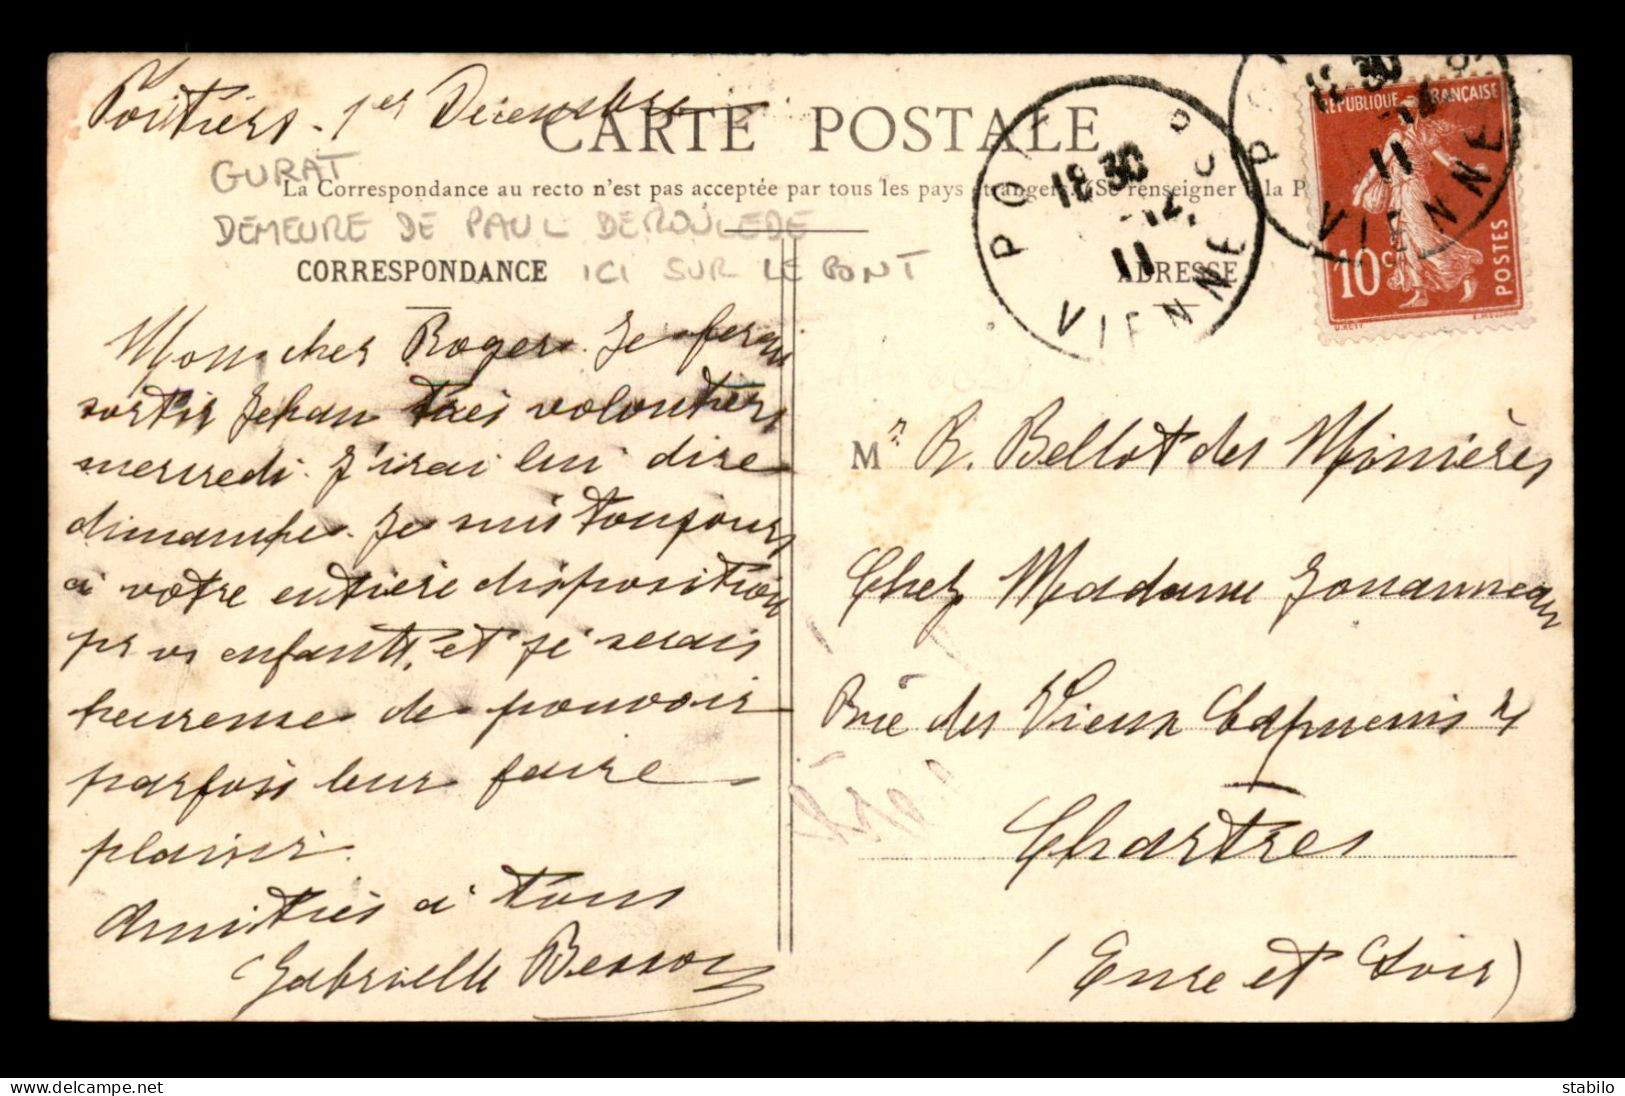 Poitiers - 1er Décembre
CARTE POSTALE
GURAT
La Correspondance au recto n'est pas acceptée par tous les pays étrangers. (Se renseigner à la P
DEMEURE DE PAUL DEROULEDE
CORRESPONDANCE
ICI SUR LE PONT
ADRESSE
Mon cher Roger. Je ferai
sortir Jehan très volontiers
mercredi. J'irai lui dire
dimanche. Je suis toujours
à votre entière disposition
pr vs enfants, et je serais
heureuse de pouvoir
parfois leur faire
plaisir.
Amitiés à tous
Gabrielle Besson
POI RS
18 30
1-12
11
VIENNE
PO
18 30
-12
11
VIENNE
REPUBLIQUE FRANÇAISE
10c
POSTES
Mr R. Bellot des Minières
Chez Madame Jouanneau
Rue des Vieux Capucins 21
Chartres
(Eure et Loir)
stabilo